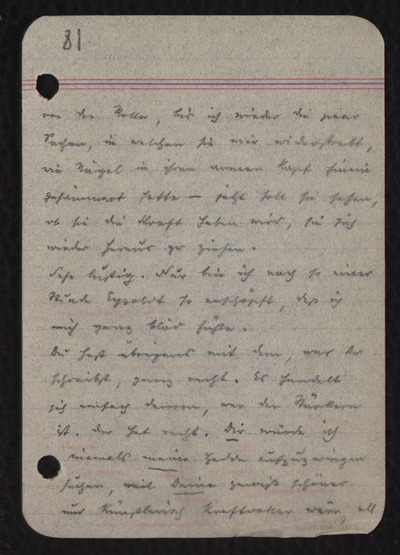 81
vor der Rolle, bis ich wieder die paar
Sachen, in welchen sie mir widerstrebt,
wie Nägel in ihren armen Kopf hinein
gehämmert hatte — jetzt soll sie sehen,
ob sie die Kraft haben wird, sie sich
wieder heraus zu ziehen.
Sehr lustig. Nur bin ich nach so einer
Stunde Eysoldt so erschöpft, daß ich
mich ganz blöd fühle.
Du hast übrigens mit dem, was Du
schreibst, ganz recht. Es handelt
sich einfach darum, wer der Stärkere
ist. Der hat recht. Dir würde ich
niemals meine Hedda aufzuzwingen
suchen, weil Deine gewiß schöner
und künstlerisch kraftvoller wäre, als